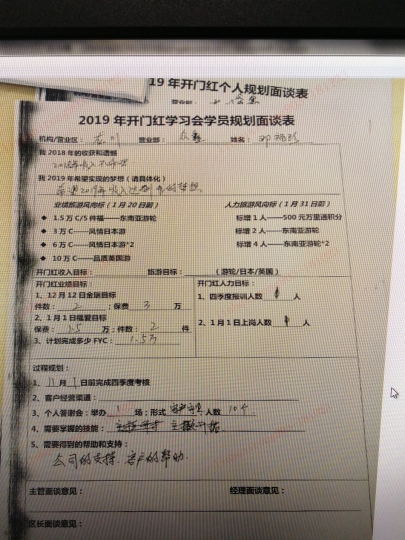 19 年开门红个人规划面谈表
营业部
2019 年开门红学习会学员规划面谈表
机构/营业区： 营业部： 姓名：
我 2018 年的收获和遗憾
我 2019 年希望实现的梦想（请具体化）
希望2019年收入达到 的梦想
业绩旅游风向标（1 月 20 日前） 人力旅游风向标（1 月 31 日前）
◆ 1.5 万 C/5 件福——东南亚游轮 标增 1 人——500 元万里通积分
◆ 3 万 C——风情日本游 标增 2 人——东南亚游轮
◆ 6 万 C——风情日本游*2 标增 4 人——东南亚游轮*2
◆ 10 万 C——品质英国游
开门红收入目标： 旅游目标： （游轮/日本/英国）
开门红业绩目标： 开门红人力目标：
1、12 月 12 日金瑞目标 1、四季度报训人数 人
件数： 2 ；保费： 3 万
2、1 月 1 日福爱目标 2、1 月 1 日上岗人数 人
保费： 1.5 万；件数： 2 件
3、计划完成多少 FYC： 1.5万
过程规划：
1、 11 月 日前完成四季度考核
2、客户经营渠道：
3、个人答谢会：举办 1 场；形式 人数 10人
4、需要掌握的技能：
5、需要得到的帮助和支持：
公司的支持、客户的帮助
主管面谈意见： 经理面谈意见：
区长面谈意见：